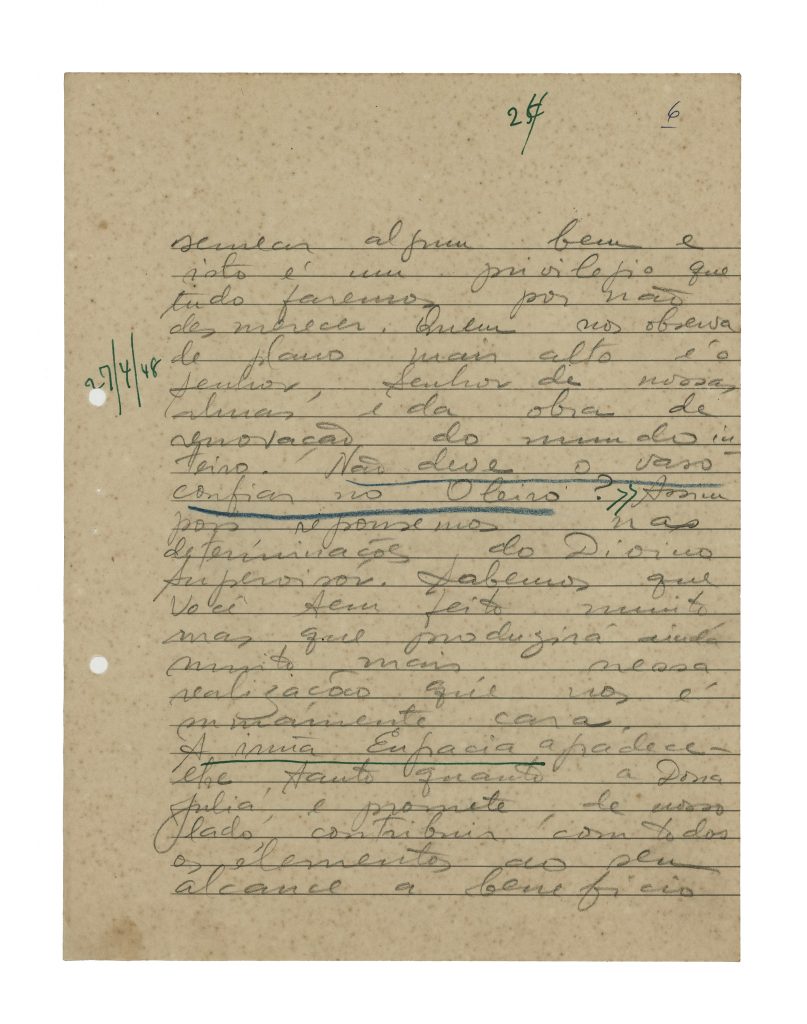 6
semear algum bem e
isto é um privilegio que
tudo faremos por não
desmerecer. Quem nos observa
de plano mais alto é o
Senhor, Senhor de nossas
almas, e da obra de
renovação do mundo in-
teiro. Não deve o vaso
confiar no Oleiro? >> Assim
pois reponsemos nas
determinações do Divino
Supervisor. Sabemos que
Você tem feito muito
mas que produzirá ainda
muito mais nessa
realização que nos é
sumamente cara.
A irmã Engracia agradece-
lhe tanto quanto a Dona
Julia, e promete, de nosso
lado, contribuir com todos
os elementos ao seu
alcance a beneficio
27/4/48